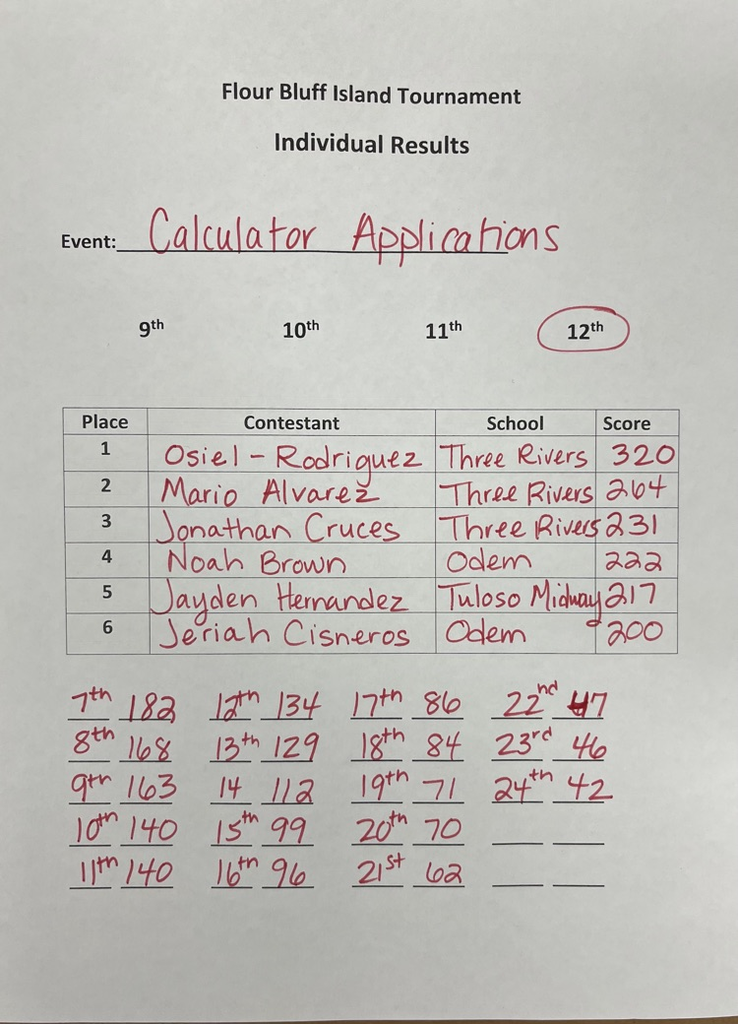 Flour Bluff Island Tournament
Individual Results
Event: Calculator Applications
9th 10th 11th 12th
Place Contestant School Score
1 Osiel - Rodriguez Three Rivers 320
2 Mario Alvarez Three Rivers 264
3 Jonathan Cruces Three Rivers 231
4 Noah Brown Odem 222
5 Jayden Hernandez Tuloso Midway 217
6 Jeriah Cisneros Odem 200
7th 182 12th 134 17th 86 22nd 47
8th 168 13th 129 18th 84 23rd 46
9th 163 14 112 19th 71 24th 42
10th 140 15th 99 20th 70
11th 140 16th 96 21st 62